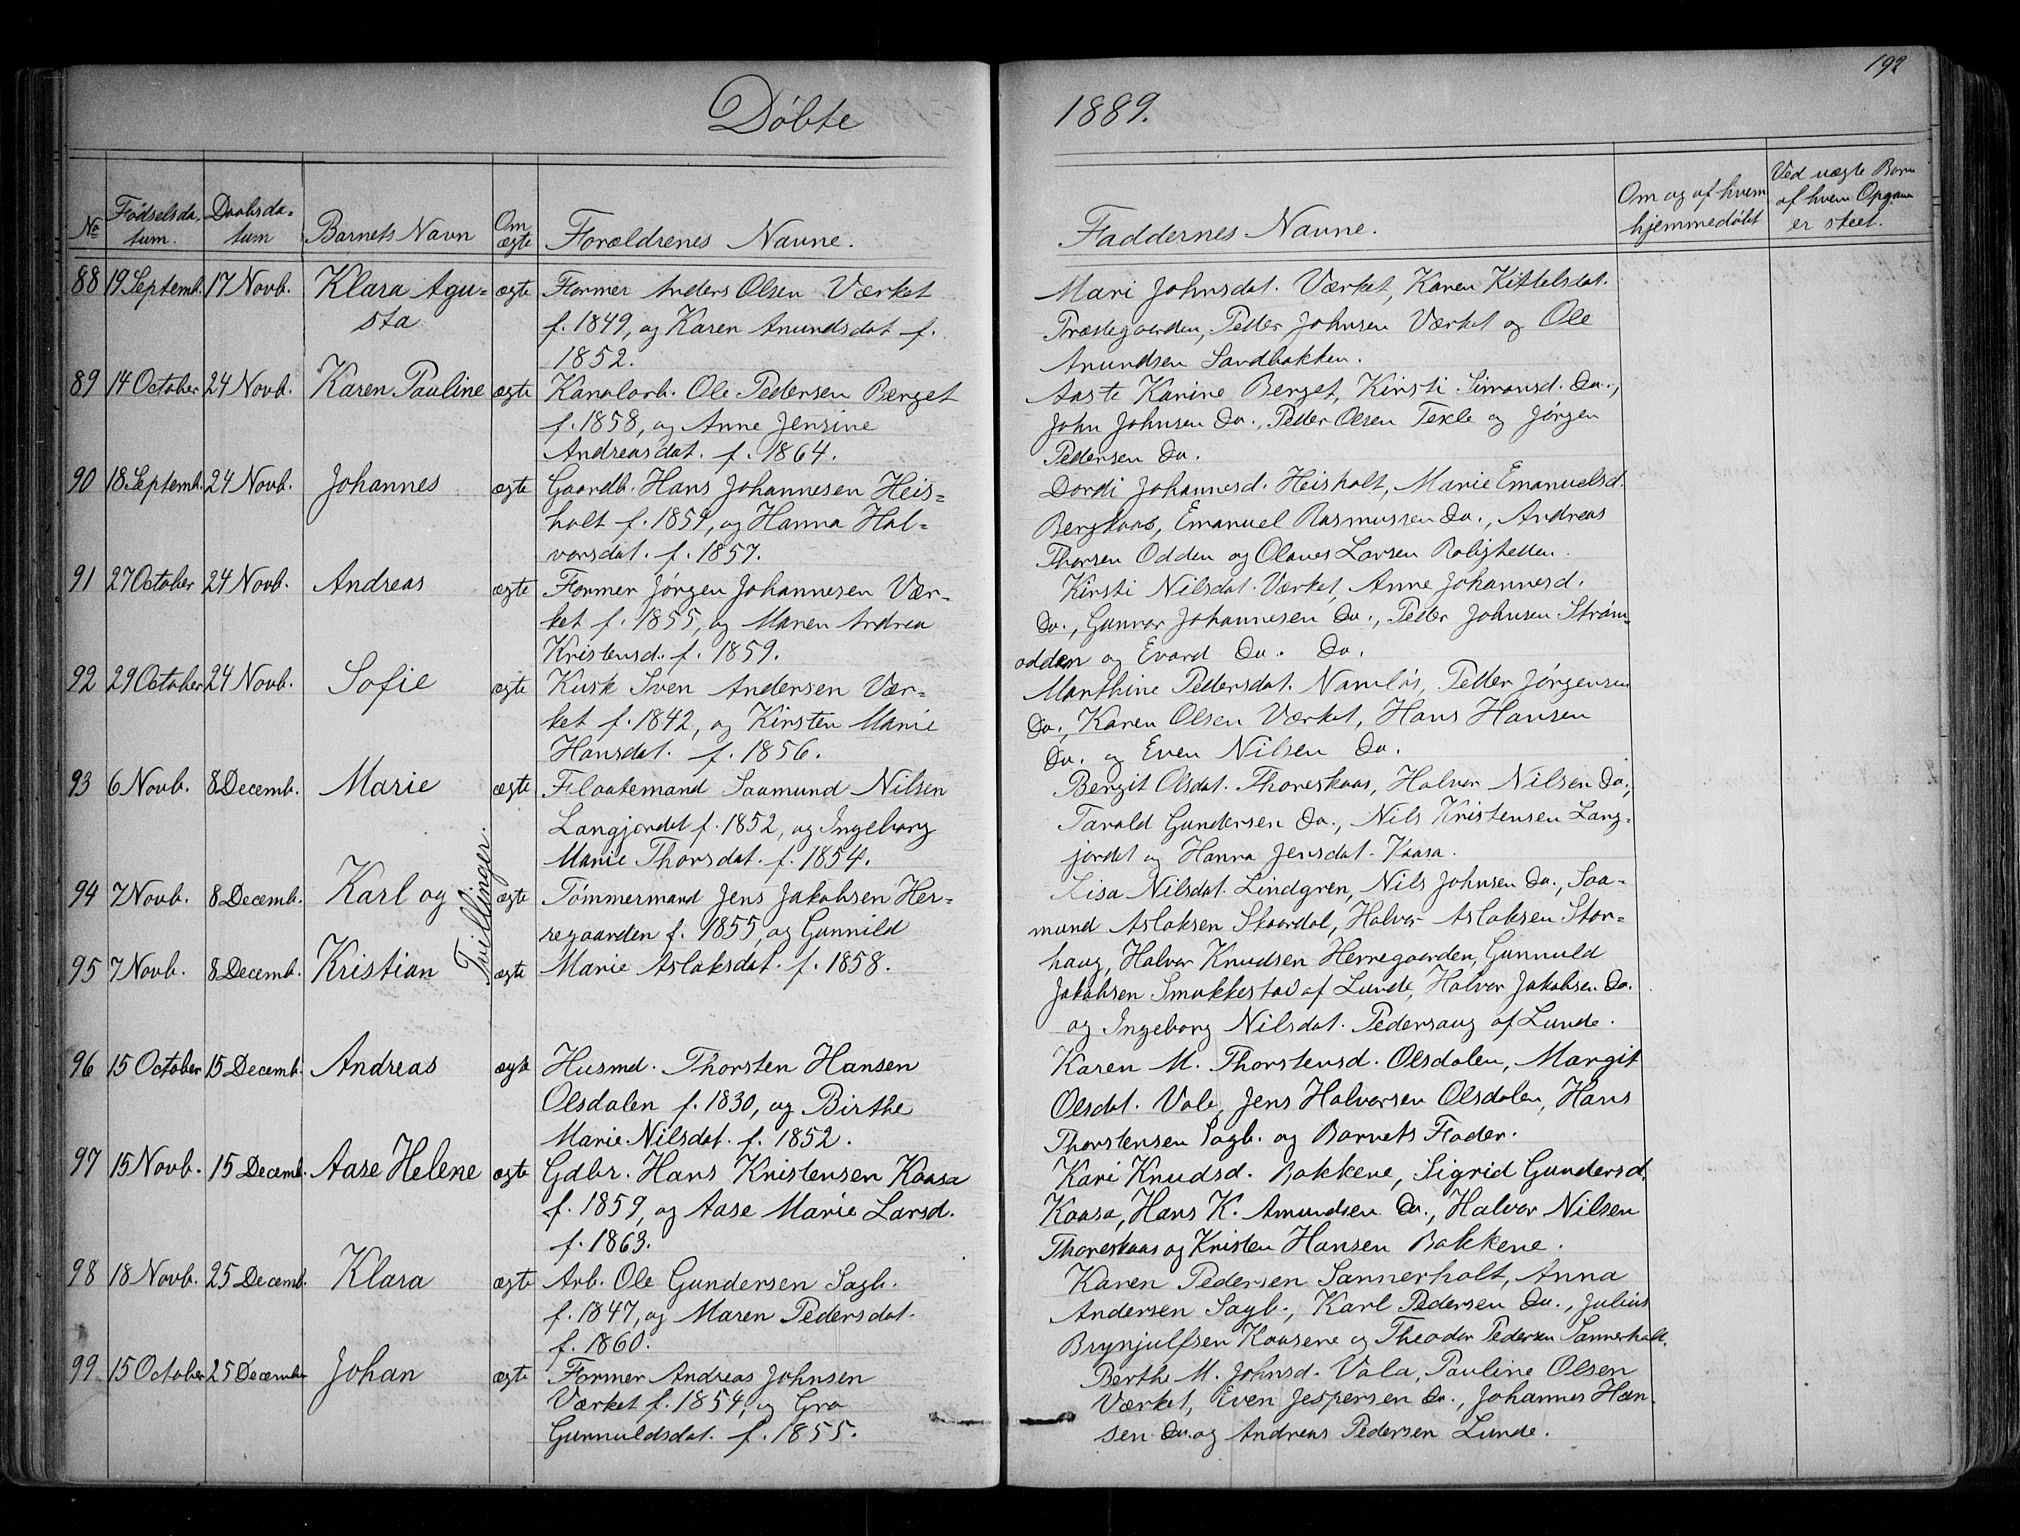 192
Døbte 1889.
No
Fødselsda-
tum.
Daabsda-
tum
Barnets Navn
Om
ægte
Forældrenes Navne.
Faddernes Navne.
Om og af hvem
hjemmedøbt
Ved uægte Børn
af hvem Opgave
er skeet.
88 19 Septemb. 17 Novb. Klara Agu- ægte Former Anders Olsen Værket
sta f. 1849, og Karen Anundsdat f.
1852.
Mari Johnsdat. Værket, Karen Kittelsdat.
Præstegaarden, Peder Johnsen Værket og Ole
Anundsen Sandbakken.
89 14 October 24 Novb. Karen Pauline ægte Kanalarb. Ole Pedersen Berget
f. 1858, og Anne Jensine
Andreasdat. f. 1864.
Aaste Karine Berget, Kirsti Simonsd. Do.,
John Johnsen Do., Peder Olsen Texle og Jørgen
Pedersen Do.
90 18 Septemb. 24 Novb. Johannes ægte Gaardb. Hans Johannesen Heis-
holt f. 1854, og Hanna Hal-
vorsdat. f. 1857.
Dordi Johannesd. Heisholt, Marie Emanuelsd.
Bergkaas, Emanuel Rasmussen Do., Andreas
Thorsen Odden og Olaves Larsen Roligheden.
91 27 October 24 Novb. Andreas ægte Former Jørgen Johannesen Vær-
ket f. 1855, og Maren Andrea
Kristensd. f. 1859.
Kirsti Nilsdat. Værket, Anne Johannesd.
Do., Gunnar Johannesen Do., Peder Johnsen Strøm-
odden og Evard Do. Do.
92 29 October 24 Novb. Sofie ægte Kusk Sven Andersen Vær-
ket f. 1842, og Kirsten Marie
Hansdat. f. 1856.
Marthine Pedersdat. Namløs, Peder Jørgensen
Do., Karen Olsen Værket, Hans Hansen
Do. og Even Nilsen Do.
93 6 Novb. 8 Decemb. Marie ægte Flaatemand Saamund Nilsen
Langjordet f. 1852, og Ingeborg
Marie Thorsdat. f. 1854.
Bergit Olsdat. Thoreskaas, Halvor Nilsen Do.,
Tarald Gundersen Do., Nils Kristensen Lang-
jordet og Hanna Jensdat. Kaasa.
Tvillinger.
94 7 Novb. 8 Decemb. Karl og ægte Tømmermand Jens Jakobsen Her-
regaarden f. 1855, og Gunnild
95 7 Novb. 8 Decemb. Kristian ægte Marie Aslaksdat. f. 1858.
Lisa Nilsdat. Lindgren, Nils Johnsen Do., Saa-
mund Aslaksen Skaardal, Halvor Aslaksen Stor-
haug, Halvor Knudsen Herregaarden, Gunnuld
Jakobsen Smukkestad af Lunde, Halvor Jakobsen Do.
og Ingeborg Nilsdat. Pedersaug af Lunde.
96 15 October 15 Decemb. Andreas ægte Husmd. Thorsten Hansen
Olsdalen f. 1830, og Birthe
Marie Nilsdat. f. 1852.
Karen M. Thorstensd. Olsdalen, Margit
Olsdat. Vala, Jens Halvorsen Olsdalen, Hans
Thorstensen Sagb. og Barnets Fader.
97 15 Novb. 15 Decemb. Aase Helene ægte Gdbr. Hans Kristensen Kaasa
f. 1859, og Aase Marie Larsd.
f. 1863.
Kari Knudsd. Bakkene, Sigrid Gundersd.
Kaasa, Hans K. Amundsen Do., Halvor Nilsen
Thoreskaas og Kristen Hansen Bakkene.
98 18 Novb. 25 Decemb. Klara ægte Arb. Ole Gundersen Sagb.
f. 1847, og Maren Pedersdat.
f. 1860.
Karen Pedersen Sannerholt, Anna
Andersen Sagb., Karl Pedersen Do., Julius
Brynjulfsen Kaasene og Theodor Pedersen Sannerholt.
99 15 October 25 December Johan ægte Former Andreas Johnsen
Værket f. 1854, og Gro
Gunnuldsdat. f. 1855.
Berthe M. Johnsd. Vala, Pauline Olsen
Værket, Even Jespersen Do., Johannes Han-
sen Do. og Andreas Pedersen Lunde.